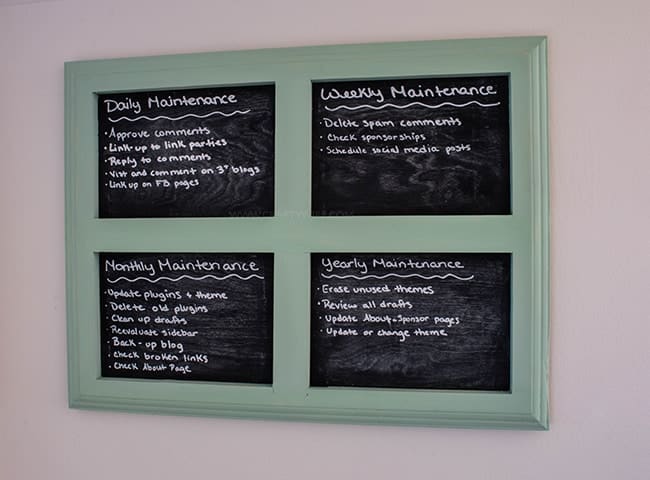 Daily Maintenance
• Approve comments
• Link up to link parties
• Reply to comments
• Visit and comment on 3+ blogs
• Link up on FB pages
Weekly Maintenance
• Delete spam comments
• Check sponsorships
• Schedule social media posts
Monthly Maintenance
• Update plugins & theme
• Delete old plugins
• Clean up drafts
• Reevaluate sidebar
• Back-up blog
• check broken links
• Check About Page
Yearly Maintenance
• Erase unused themes
• Review all drafts
• Update About & Sponsor pages
• Update or change theme